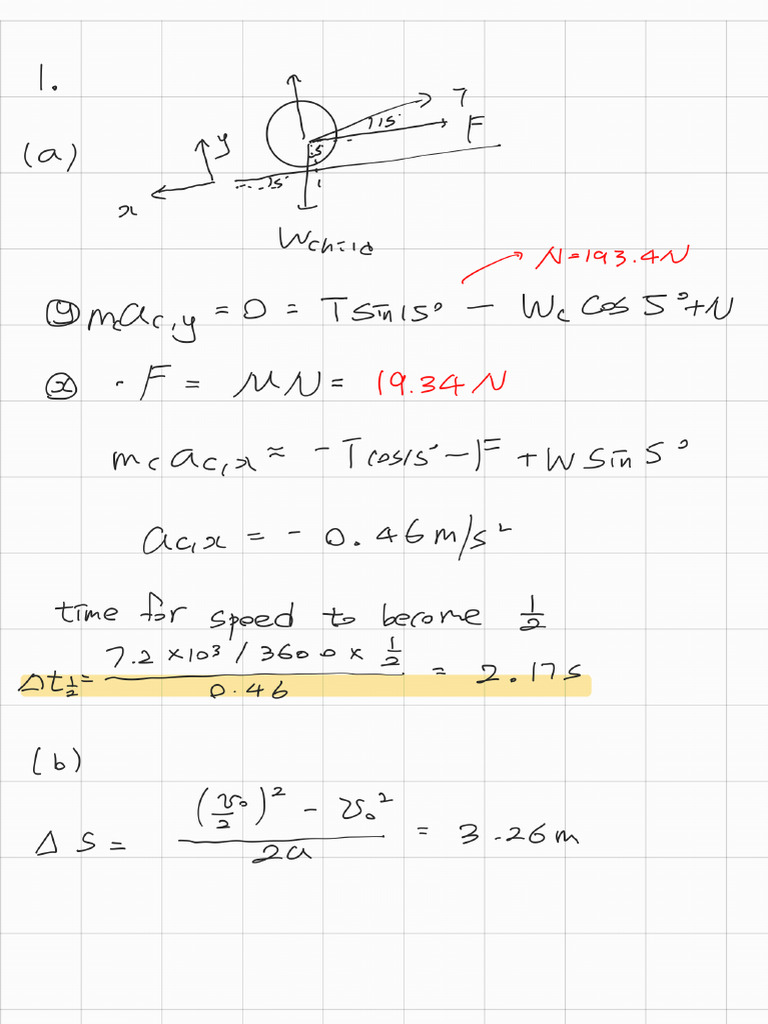 1.
(a)
T
15°
F
y
5
5°
x
Wchild
N=193.4N
ⓨ mcac,y = 0 = Tsin15° - Wc cos 5° + N
ⓧ · F = μN = 19.34 N
mcac,x = -Tcos15° - F + W sin 5°
ac,x = - 0.46 m/s²
time for speed to become 1/2
Δt1/2 = (7.2 × 10³ / 3600 × 1/2) / 0.46 = 2.17s
(b)
ΔS = ((v₀/2)² - v₀²) / 2a = 3.26m